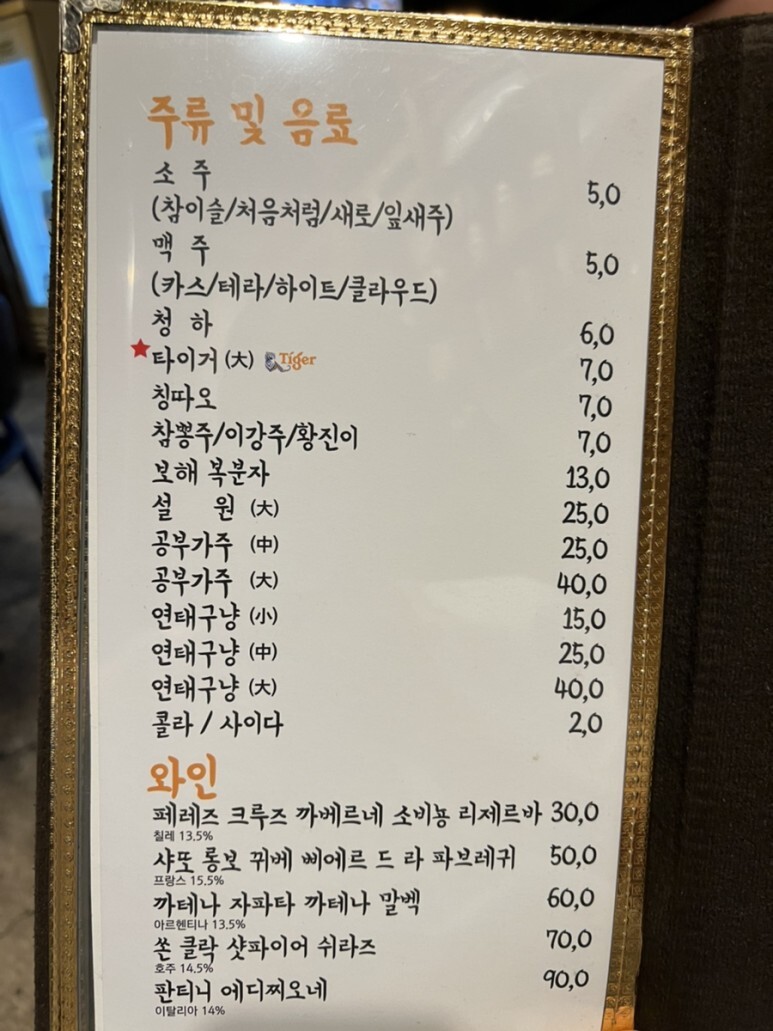 주류 및 음료
소 주
(참이슬/처음처럼/새로/잎새주) 5,0
맥 주
(카스/테라/하이트/클라우드) 5,0
청 하 6,0
타이거 (大) Tiger 7,0
칭따오 7,0
참뽕주/이강주/황진이 7,0
보해 복분자 13,0
설 원 (大) 25,0
공부가주 (中) 25,0
공부가주 (大) 40,0
연태구냥 (小) 15,0
연태구냥 (中) 25,0
연태구냥 (大) 40,0
콜라 / 사이다 2,0
와인
페레즈 크루즈 까베르네 소비뇽 리제르바 30,0
칠레 13.5%
샤또 롱보 뀌베 삐에르 드 라 파브레귀 50,0
프랑스 15.5%
까테나 자파타 까테나 말벡 60,0
아르헨티나 13.5%
쏜 클락 샷파이어 쉬라즈 70,0
호주 14.5%
판티니 에디찌오네 90,0
이탈리아 14%